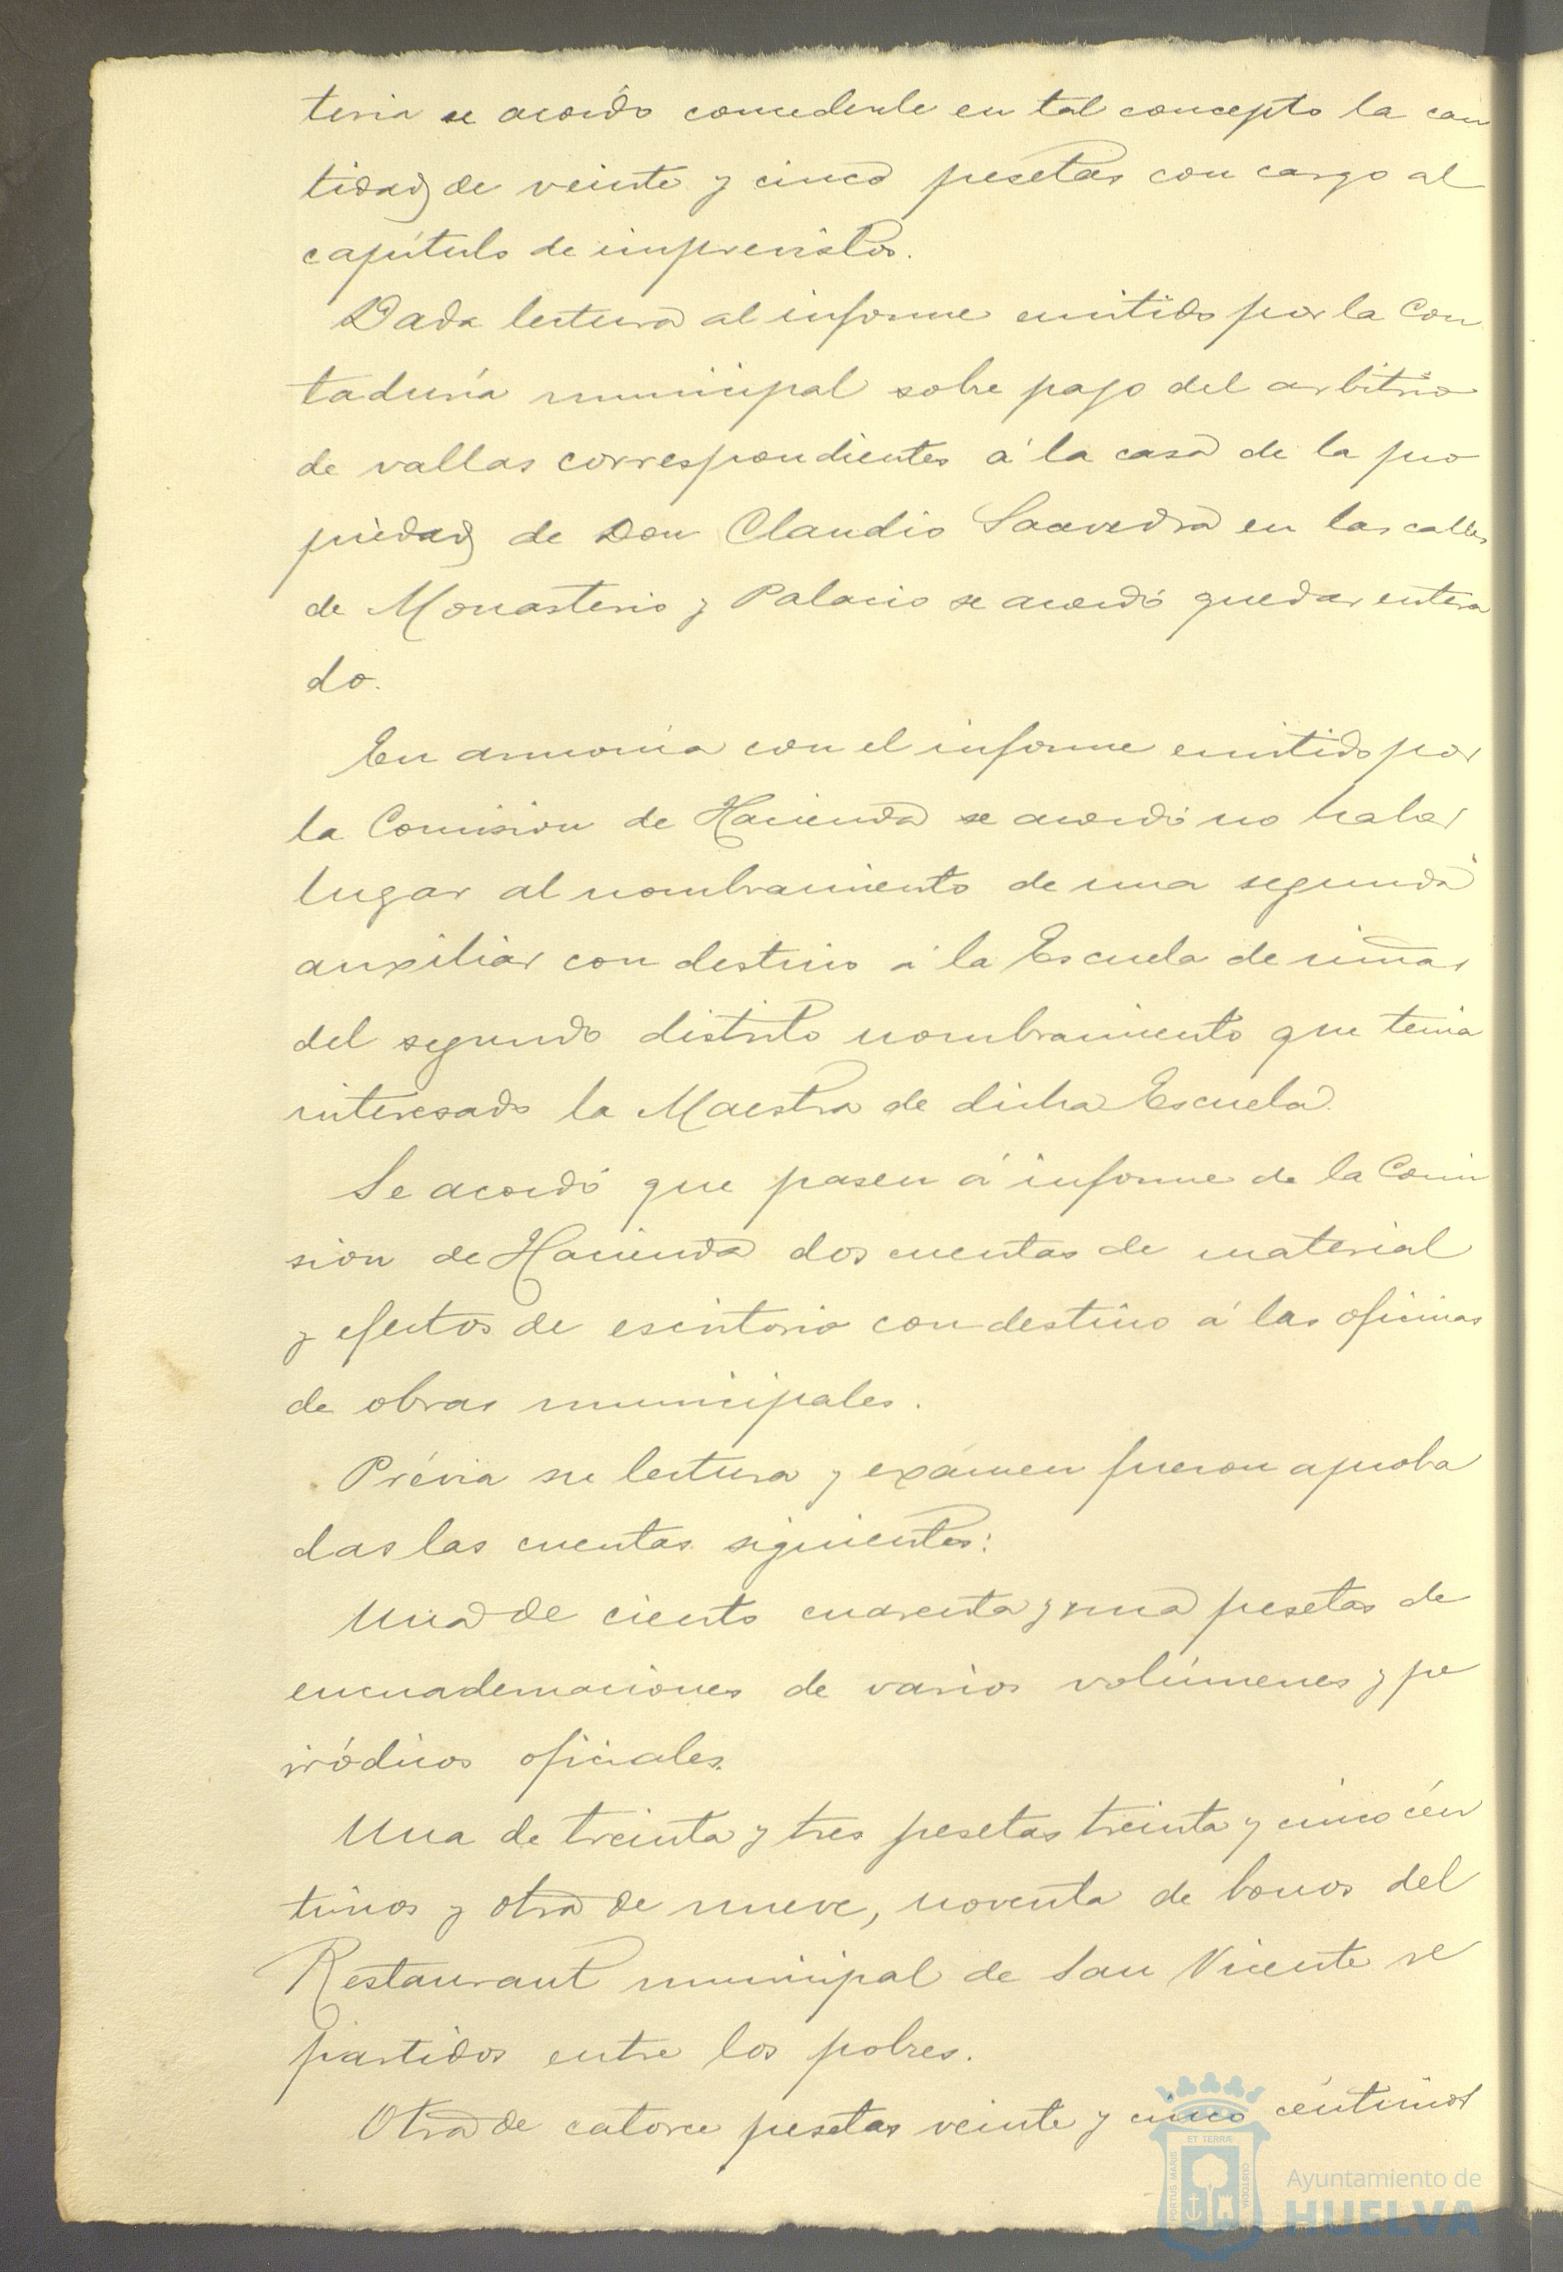 teria se acordó concederle en tal concepto la can
tidad de veinte y cinco pesetas con cargo al
capítulo de imprevistos.
Dada lectura al informe emitido por la Con
taduría municipal sobre pago del arbitrio
de vallas correspondientes á la casa de la pro
piedad de Don Claudio Saavedra en las calles
de Monasterio y Palacio se acordó quedar entera
do.
En armonía con el informe emitido por
la Comision de Hacienda se acordó no haber
lugar al nombramiento de una segunda
auxiliar con destino á la Escuela de niñas
del segundo distrito nombramiento que tenia
interesado la Maestra de dicha Escuela.
Se acordó que pasen á informe de la Comi
sion de Hacienda dos cuentas de material
y efectos de escritorio con destino á las oficinas
de obras municipales.
Prévia su lectura y exámen fueron aproba
das las cuentas siguientes:
Una de ciento cuarenta y una pesetas de
encuadernaciones de varios volúmenes y pe
riódicos oficiales.
Una de treinta y tres pesetas treinta y cinco cén
timos y otra de nueve, noventa de bonos del
Restaurant municipal de San Vicente re
partidos entre los pobres.
Otra de catorce pesetas veinte y cinco céntimos
PORTUS MARIS ET TERRÆ CUSTODIA
Ayuntamiento de
HUELVA